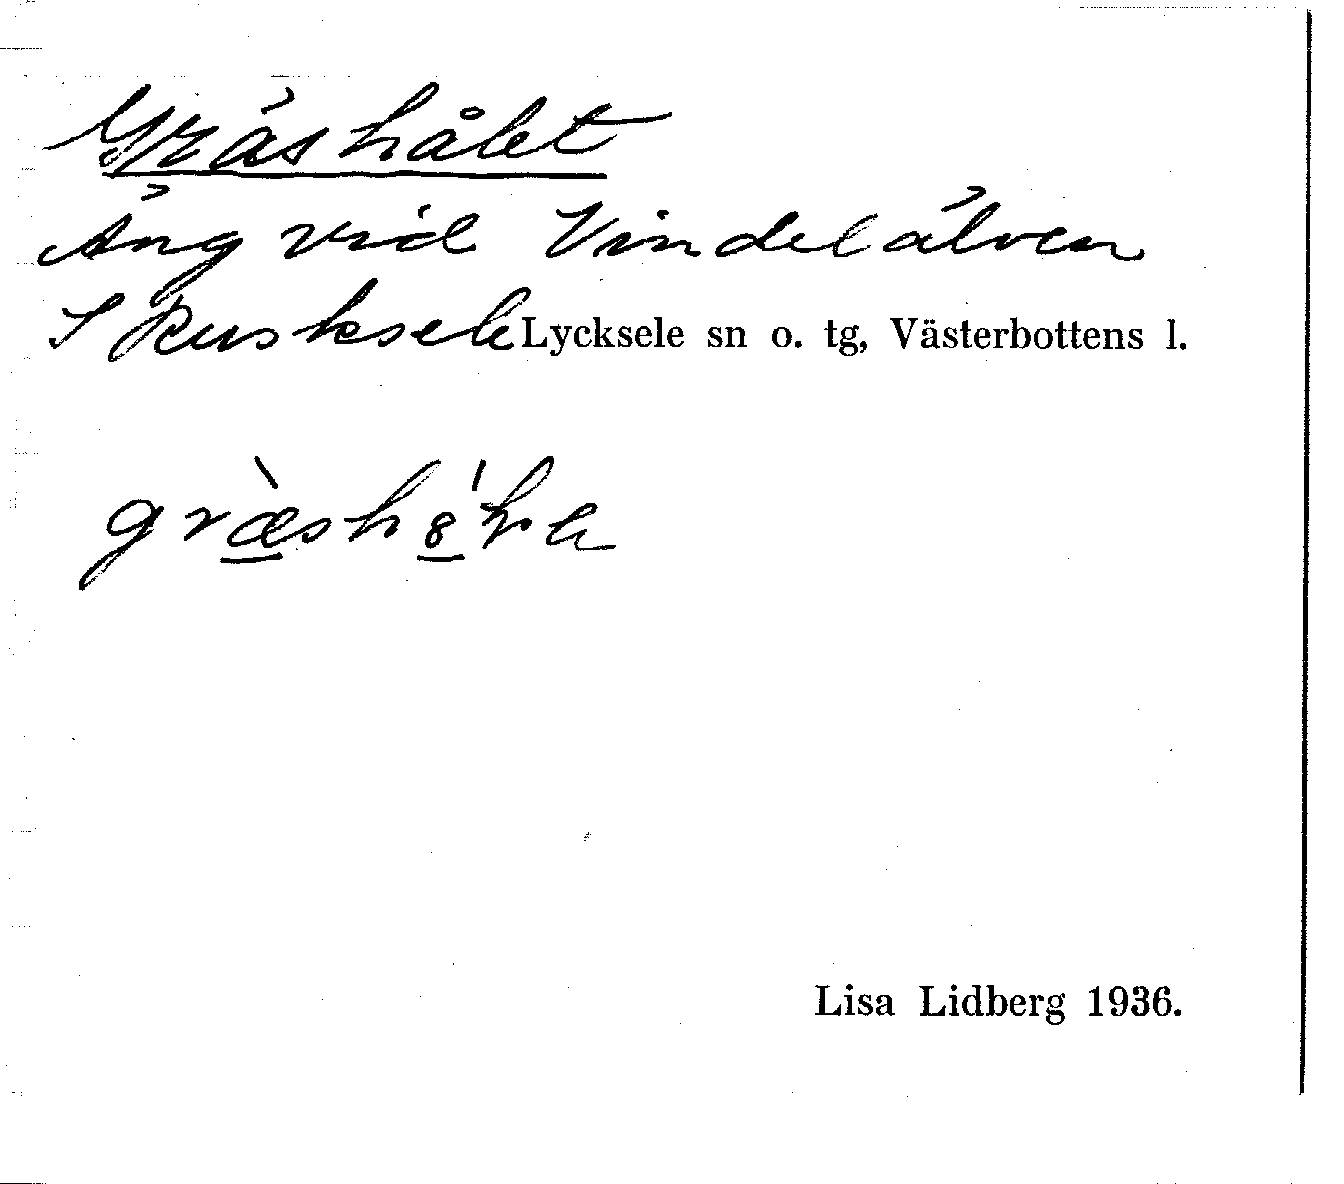 Gräshålet
Äng vid Vindelälven
S Rusksele Lycksele sn o. tg, Västerbottens l.
Lisa Lidberg 1936.